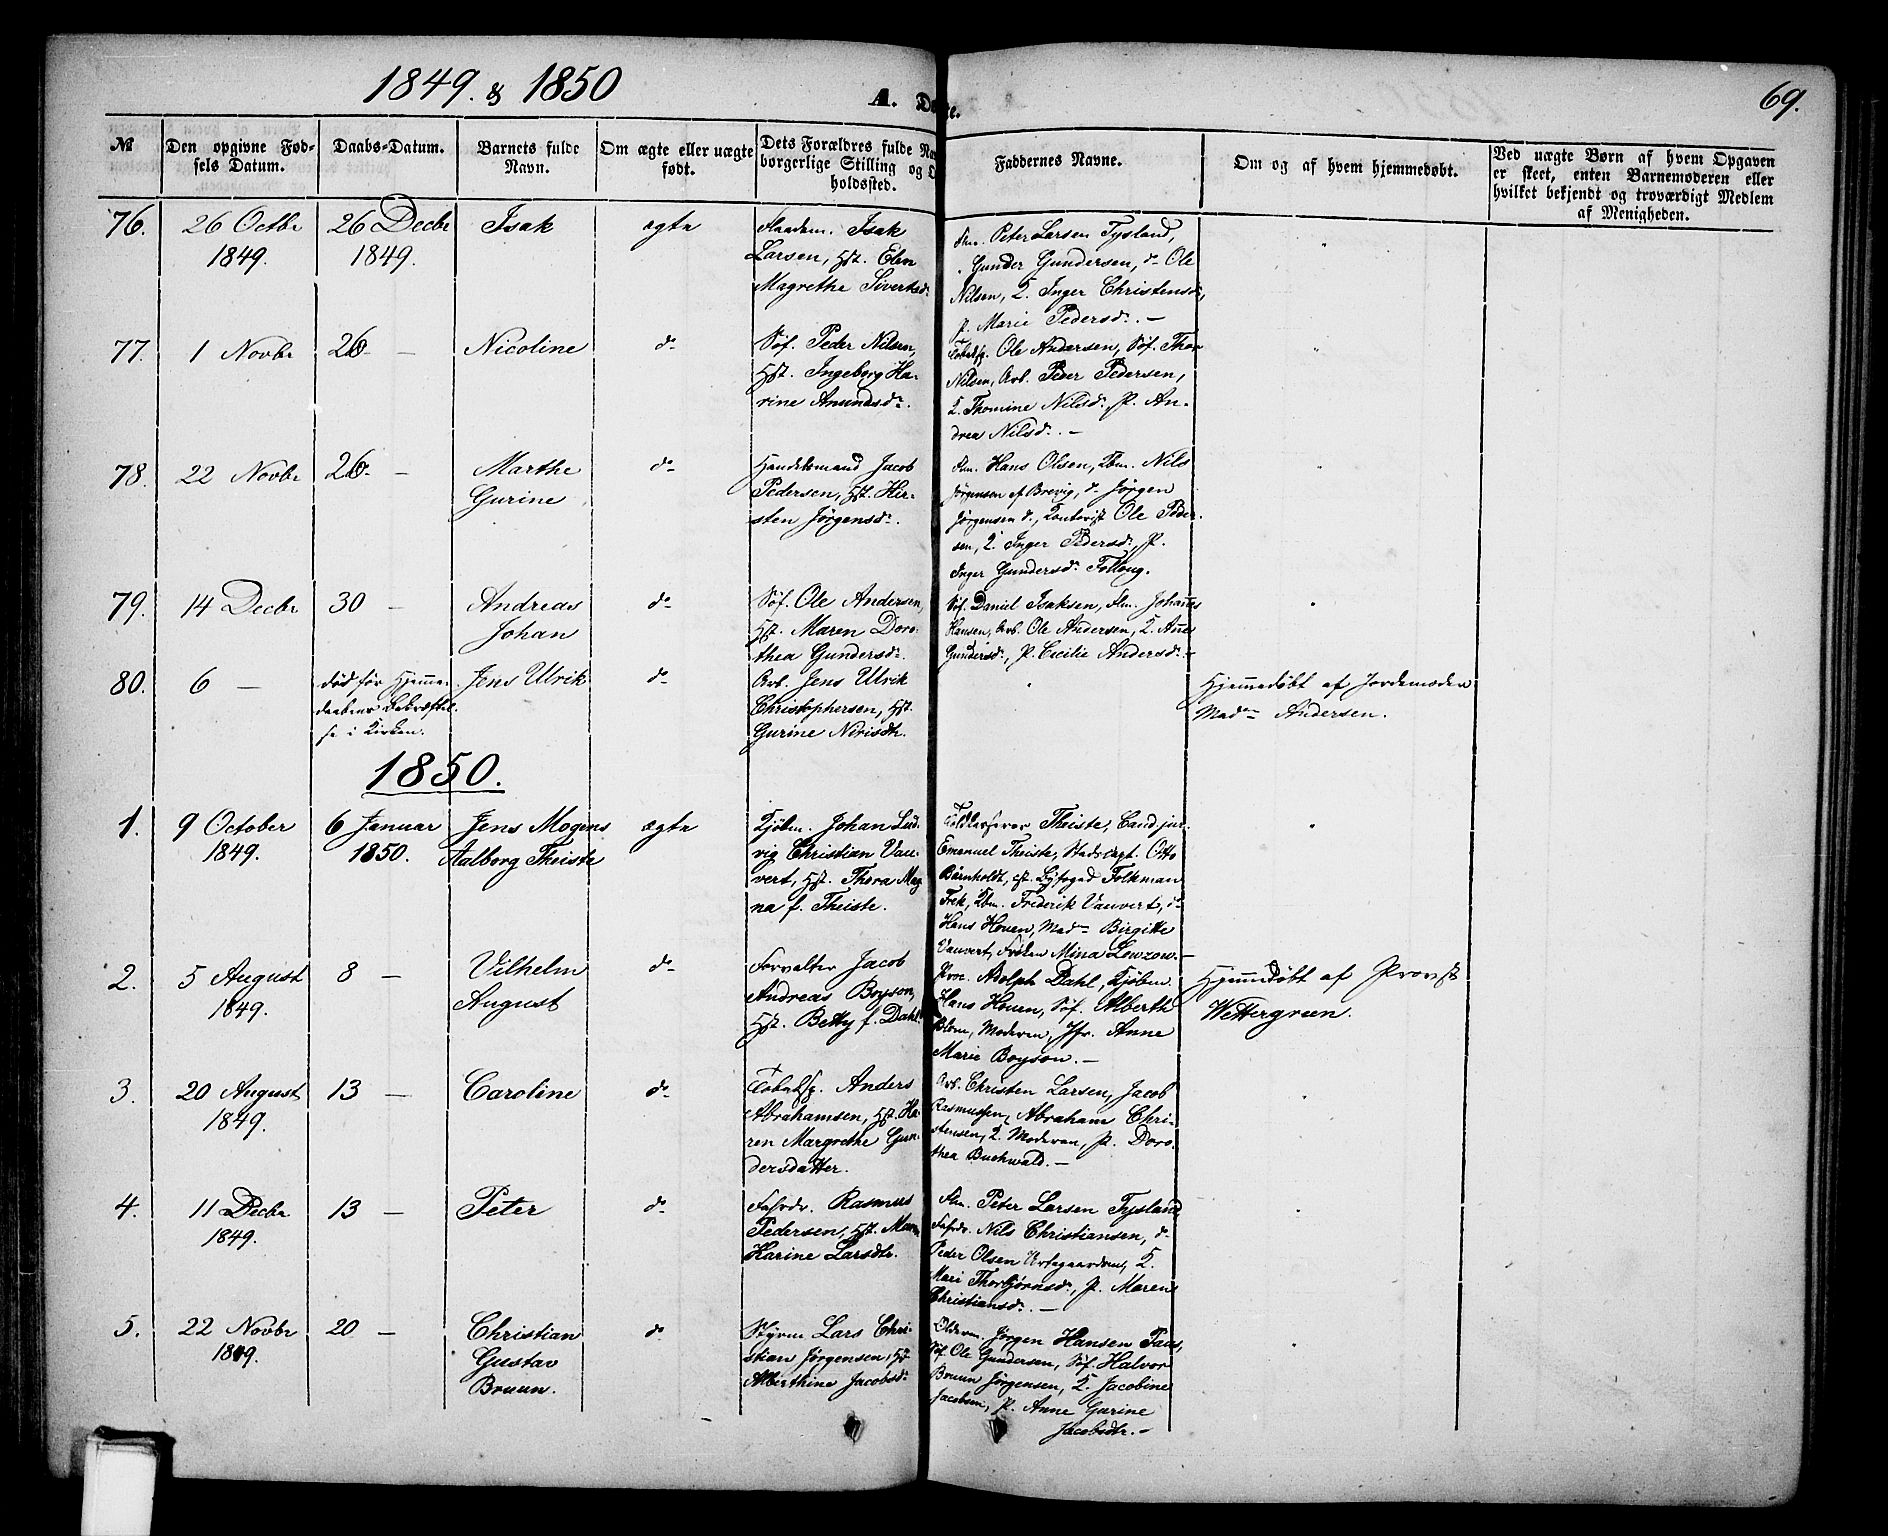 1849 & 1850
A. Dø
te.
69.
№
Den opgivne Fød-
sels Datum.
Daabs-Datum.
Barnets fulde
Navn.
Om ægte eller uægte
født.
Dets Forældres fulde Na
borgerlige Stilling og O
holdssted.
Faddernes Navne.
Om og af hvem hjemmedøbt.
Ved uægte Børn af hvem Opgaven
er skeet, enten Barnemoderen eller
hvilket bekjendt og troværdigt Medlem
af Menigheden.
76.
26 Octbr
1849.
26 Decbr
1849.
Isak
ægte
Isak
Larsen, Hst. Elen
Magrethe Sivertsd.
Peter Larsen Tysland,
Gunder Gundersen, do Ole
Nilsen, K. Inger Christensd.,
P. Marie Pedersd. —
77.
1 Novbr
26 —
Nicoline
do
Søf. Peder Nilsen,
Hst. Ingeborg Ka-
rine Amundsdr.
Ole Andersen, Søf. Thor
Nilsen, Arb. Peder Pedersen,
K. Thomine Nilsd. P. An-
drea Nilsd. —
78.
22 Novbr
26 —
Marthe
Gurine
do
Handelsmand Jacob
Pedersen, Hst. Kir-
sten Jørgensdr.
Hans Olsen, Kbm. Nils
Jørgensen af Brevig, do Jørgen
Jørgensen do, Kontorist Ole Peder-
sen, K. Inger Pedersd., P.
Inger Gundersd.
79.
14 Decbr
30 —
Andreas
Johan
do
Søf. Ole Andersen,
Hst. Maren Doro-
thea Gundersdr.
Søf. Daniel Isaksen, Johanes
Hansen, Arb. Ole Andersen, K. Anne
Gundersd., P. Cecilie Andersd. —
80.
6 —
død før Hjemme-
daabens Bekræftel-
se i Kirken.
Jens Ulrik
do
Arb. Jens Ulrik
Christophersen, Hst.
Gurine
Hjemmedøbt af Jordemoder
Madm Andersen.
1850.
1.
9 October
1849.
6 Januar
1850.
Jens Mogens
Aalborg Theiste
ægte
Kjøbm. Johan Lud-
vig Christian Vau-
vert, Hst. Thora Mag
na f. Theiste.
Theiste, Cand. jur.
Emanuel Theiste, Stadscapt. Otto
Bärnholdt, cst. Byfoged Folkman
Kbm. Frederik Vauvert, do
Hans Houen, Madm Birgitte
Vauvert, Frøken Mina Lowzow. —
2.
5 August
1849.
8 —
Vilhelm
August
do
Forvalter Jacob
Andreas Boyson,
Hst. Betty f. Dahl
Proc. Adolph Dahl, Kjøbm.
Hans Houen, Søf. Alberth
Blom, Moderen, Jfr. Anne
Marie Boyson. —
Hjemmedøbt af Provst
Wettergreen.
3.
20 August
1849.
13 —
Caroline
do
Anders
Abrahamsen, Hst. Ka-
ren Margrethe Gun-
dersdatter.
Arb. Christen Larsen, Jacob
Rasmussen, Abraham Chri-
stensen, K. Moderen, P. Doro-
thea Buchwald. —
4.
11 Decbr
1849.
13 —
Peter
do
Rasmus
Pedersen, Hst. Maren
Karine Larsdtr.
Peter Larsen Tysland,
Nils Christiansen, do
Peder Olsen K.
Mari Thorbjørnsd., P. Maren
Christiansd. —
5.
22 Novbr
1849.
20 —
Christian
Gustav
Bruun.
do
Styrm Lars Chri-
stian Jørgensen, Hst
Alberthine Jacobsdr
Olderm. Jørgen Hansen
Søf. Ole Gundersen, Søf. Halvor
Bruun Jørgensen, K. Jacobine
Jacobsen, P. Anne Gurine
Jacobsdtr. —